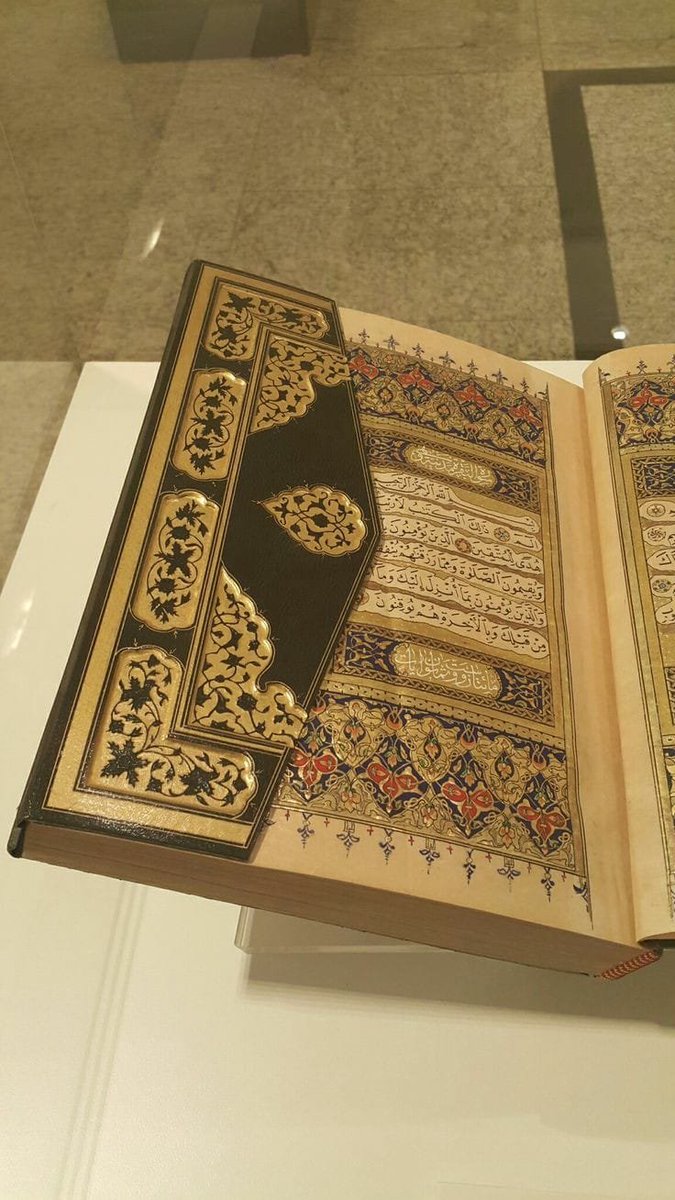 سورة البقرة
بِسْمِ اللهِ الرَّحْمٰنِ الرَّحِيمِ
الم ذٰلِكَ الْكِتَابُ لَا رَيْبَ
هُدًى لِلْمُتَّقِينَ الَّذِينَ يُؤْمِنُونَ
وَيُقِيمُونَ الصَّلٰوةَ وَمِمَّا رَزَقْنَاهُمْ يُنْفِقُونَ
وَالَّذِينَ يُؤْمِنُونَ بِمَا أُنْزِلَ إِلَيْكَ وَمَا
مِنْ قَبْلِكَ وَبِالْآخِرَةِ هُمْ يُوقِنُونَ
مائتان